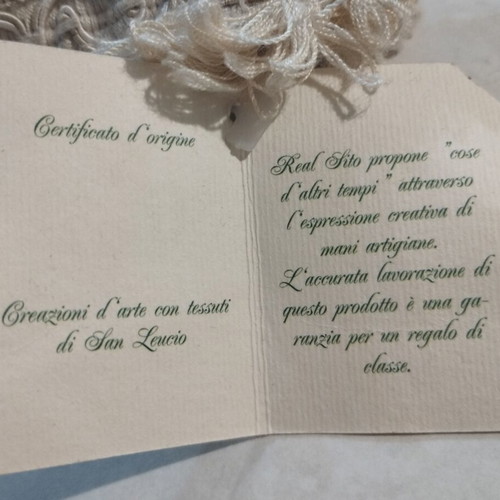 Certificato d'origine
Creazioni d'arte con tessuti
di San Leucio
Real Sito propone "cose
d'altri tempi" attraverso
l'espressione creativa di
mani artigiane.
L'accurata lavorazione di
questo prodotto è una ga-
ranzia per un regalo di
classe.